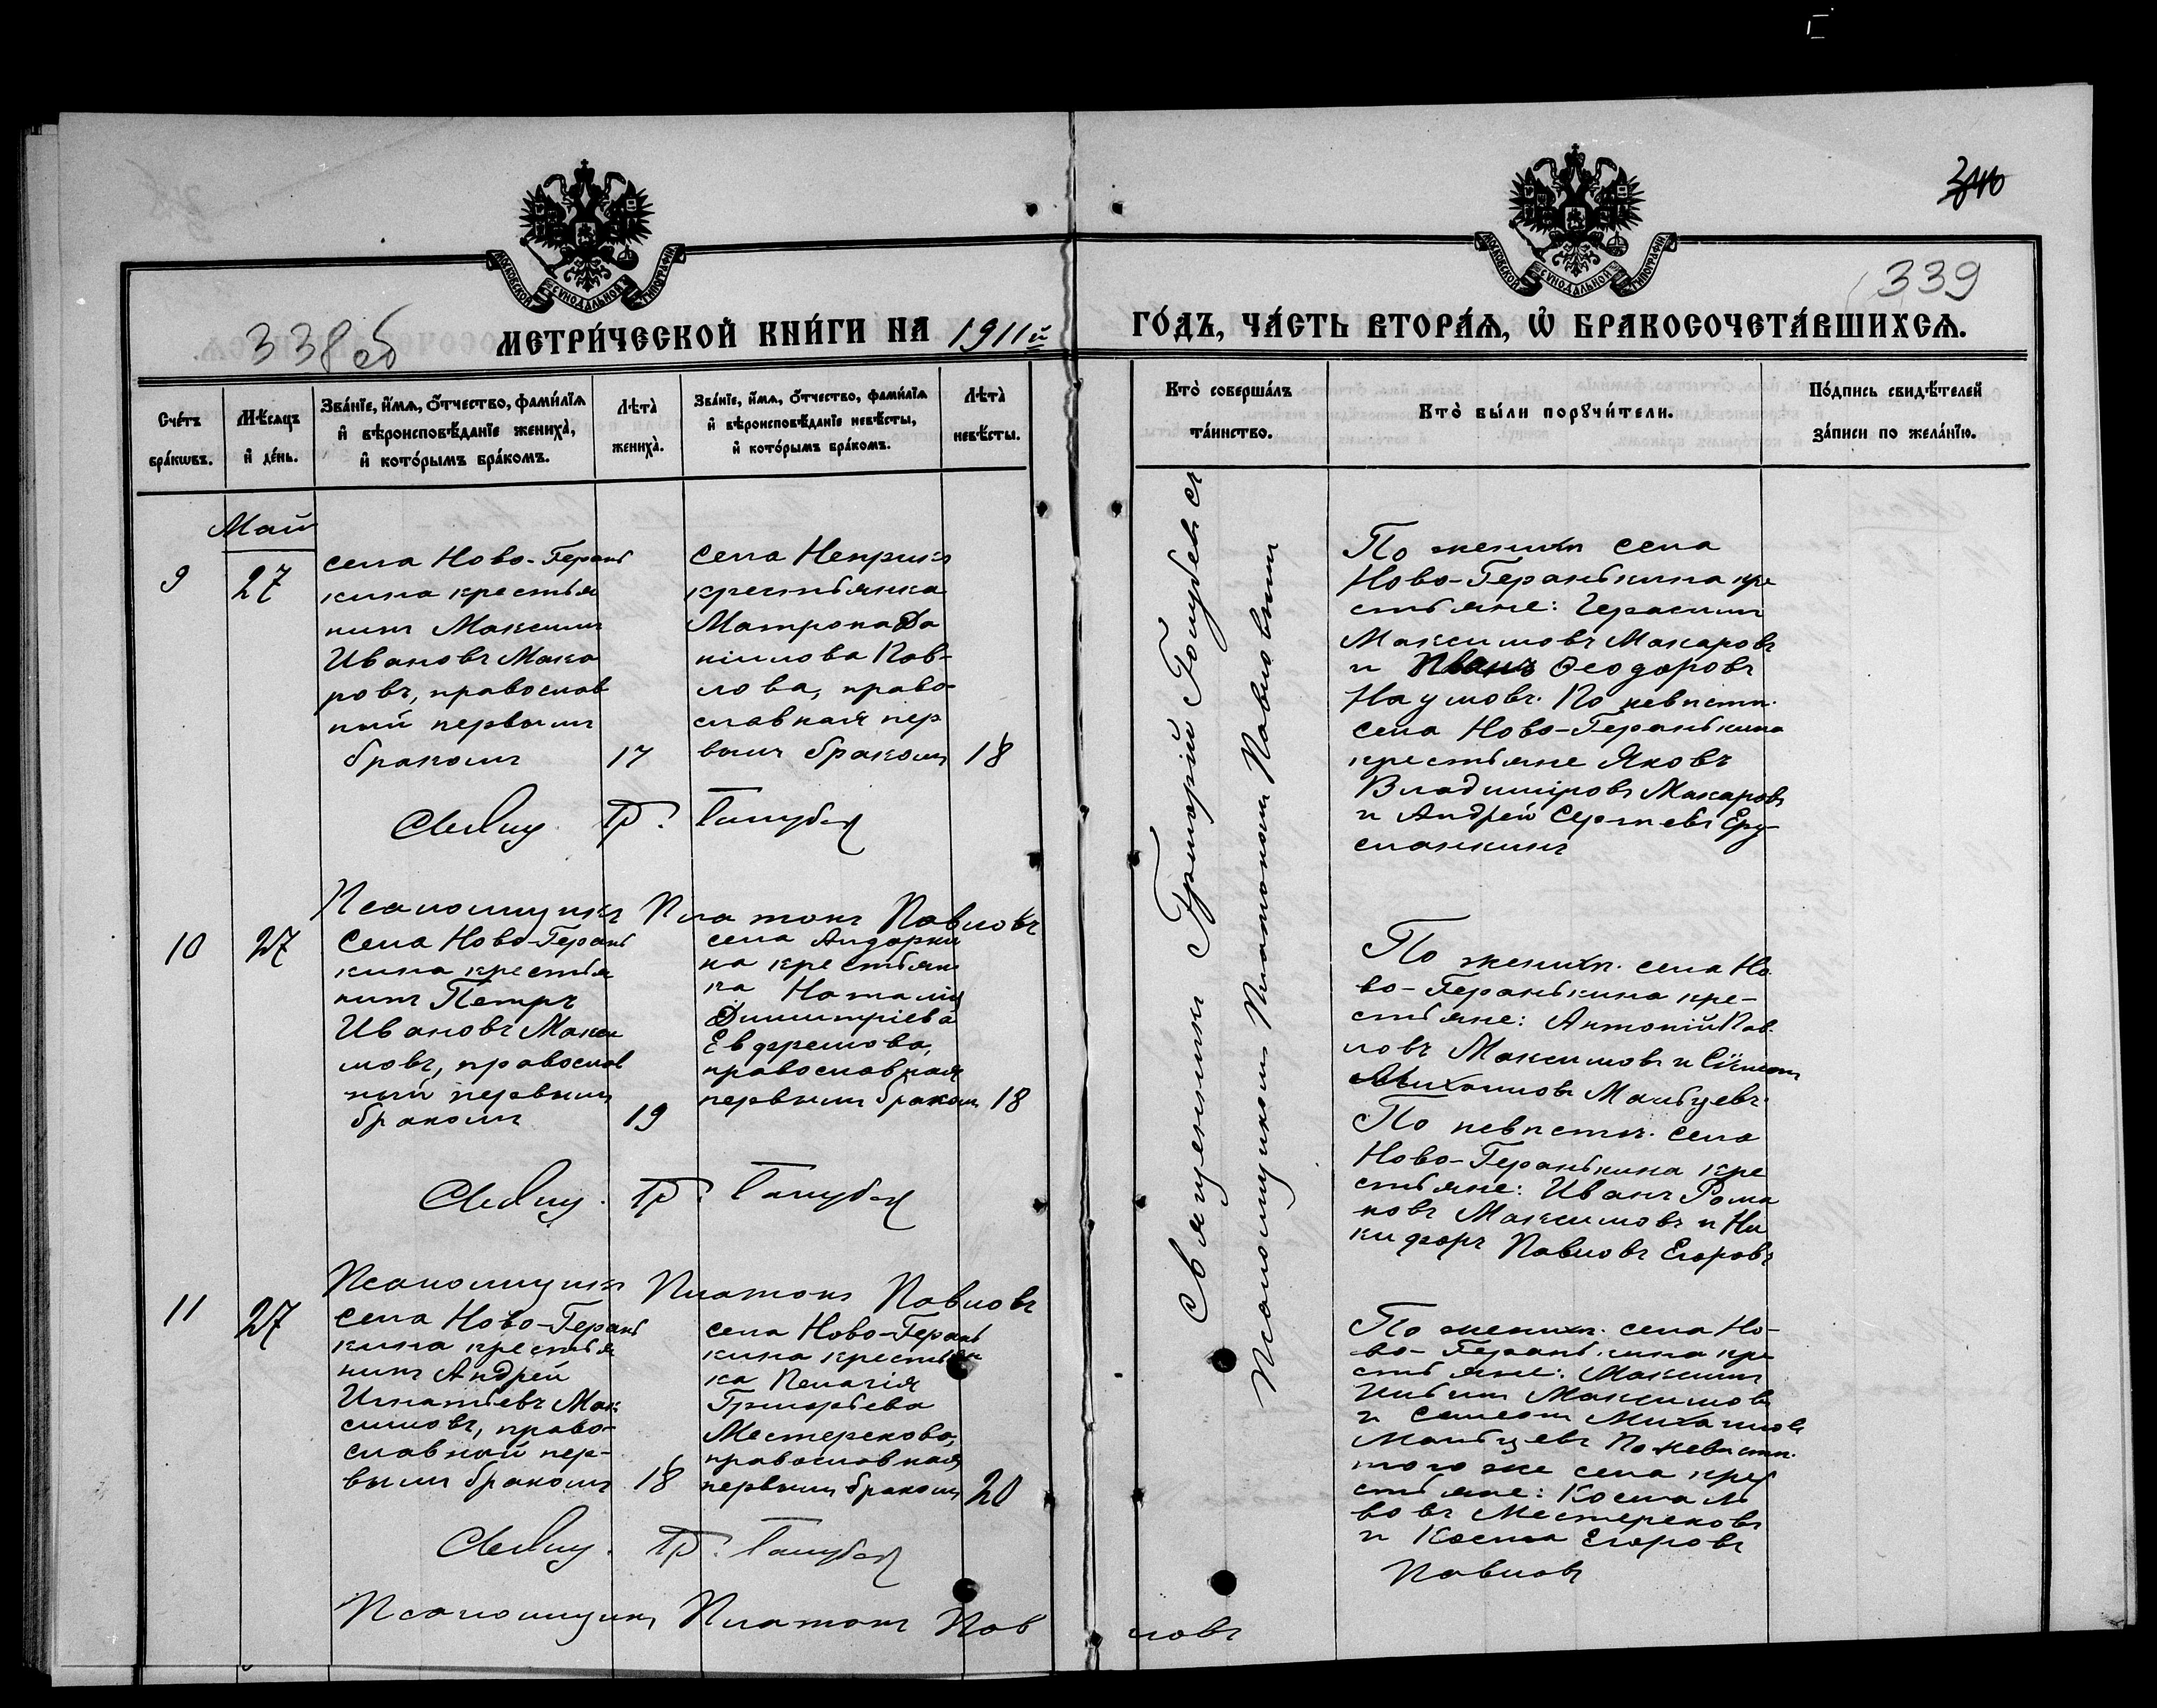 340
339
338об
МОСКОВСКОЙ СУНОДАЛЬНОЙ ТИПОГРАФІИ
МОСКОВСКОЙ СУНОДАЛЬНОЙ ТИПОГРАФІИ
МЕТРИ́ЧЕСКОЙ КНИ́ГИ НА 1911й ГО́ДЪ, ЧА́СТЬ ВТОРА́Ѧ, Ѡ҆ БРАКОСОЧЕТА́ВШИХСѦ.
Сче́тъ
бра́кѡвъ.
Мѣ́сѧцъ
и҆ де́нь.
Зва́нїе, и҆́мѧ, о҆́тчество, фами́лїѧ
и҆ вѣроисповѣ́данїе жениха̀,
и҆ кото́рымъ бра́комъ.
Лѣта̀
жениха̀.
Зва́нїе, и҆́мѧ, о҆́тчество, фами́лїѧ
и҆ вѣроисповѣ́данїе невѣ́сты,
и҆ кото́рымъ бра́комъ.
Лѣта̀
невѣ́сты.
Кто̀ соверша́лъ
та́инство.
Кто̀ бы́ли порꙋчи́тели.
По́дпись свидѣ́телей
за́писи по жела́нїю.
Май
9
27
села Ново-Герань
кина крестья
нинъ Максимъ
Ивановъ Мака
ровъ, православ
ный первымъ
бракомъ
17
села Неприкъ
крестьянка
Матрона Да
ніилова Пав-
лова, право-
славная пер
вымъ бракомъ
18
По женихѣ села
Ново-Геранькина кре
стьяне: Герасимъ
Максимовъ Макаровъ
и Иванъ Ѳеодоровъ
Наумовъ. По невѣстѣ.
села Ново-Геранькина
крестьяне Яковъ
Владиміровъ Макаровъ
и Андрей Сергѣевъ Еру
сланкинъ
Священникъ Григорій Голубевъ съ
Псаломщикомъ Платономъ Павловымъ
Гр. Голубев
Псаломщикъ Платонъ Павловъ
10
27
Села Ново-Герань
кина крестья
нинъ Петръ
Ивановъ Макси
мовъ, православ
ный первымъ
бракомъ
19
села Андорки
на крестьян
ка Наталія
Димитріева
Евфремова,
православная
первымъ бракомъ
18
По женихѣ. села Но
во-Геранькина кре-
стьяне: Антоній Пав
ловъ Максимовъ и Сѵмеонъ
Михаиловъ Мальцевъ.
По невѣстѣ. села
Ново-Геранькина кре
стьяне: Иванъ Рома
новъ Максимовъ и Ни
кифоръ Павловъ Егоровъ
Гр. Голубев
Псаломщикъ Платонъ Павловъ
11
27
села Ново-Герань
кина крестья
нинъ Андрей
Игнатьевъ Мак
симовъ, право-
славный пер-
вымъ бракомъ
18
села Ново-Герань
кина крестьян
ка Пелагія
Григорьева
Местерекова,
православная
первымъ бракомъ
20
По женихѣ. села Но-
во-Геранькина кре
стьяне: Максимъ
Максимовъ
и Симеонъ Михаиловъ
Мальцевъ По невѣстѣ.
того же села кре
стьяне: Косма Ль
вовъ Местерековъ
и Косма Егоровъ
Павловъ
Гр. Голубев
Псаломщикъ Платонъ Павловъ